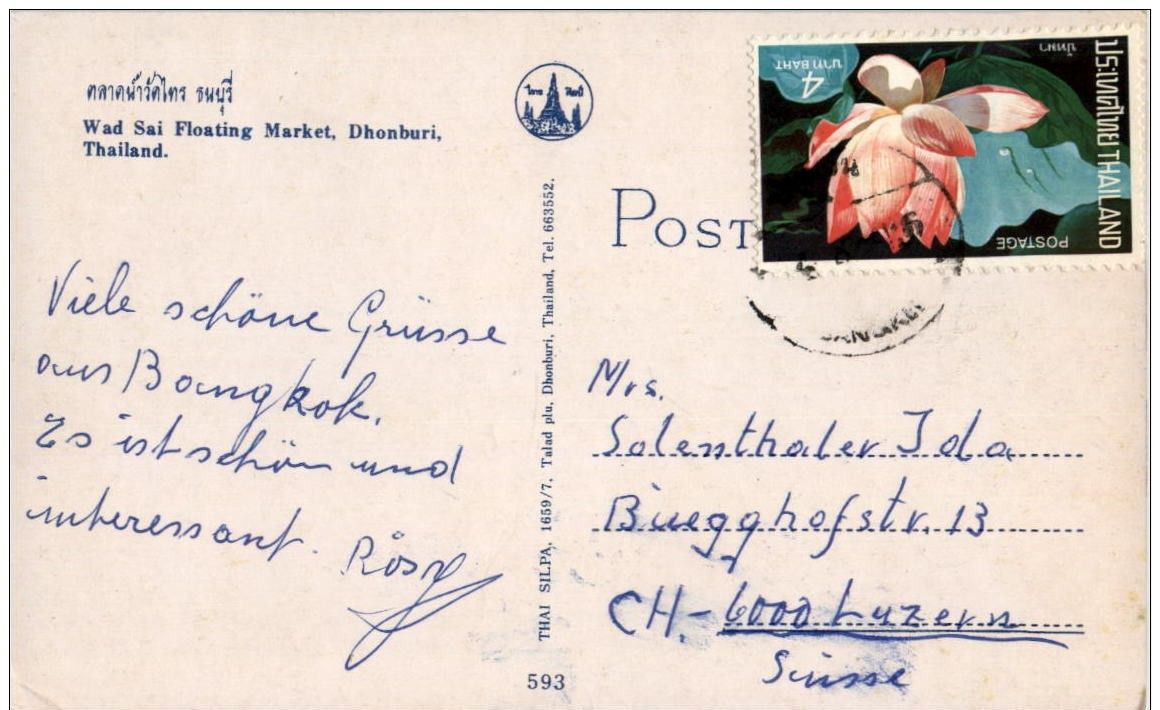 ตลาดน้ำวัดไทร ธนบุรี
Wad Sai Floating Market, Dhonburi,
Thailand.
Viele schöne Grüsse
aus Bangkok.
Es ist schön und
interessant.
Rösy
THAI SILPA, 1659/7, Talad plu, Dhonburi, Thailand, Tel. 663552.
593
ไทย ศิลป์
POST
4
บาท BAHT
ปัทมา
ประเทศไทย THAILAND
POSTAGE
Mrs.
Solenthaler Ida
Buegghofstr. 13
CH.- 6000 Luzern
Suisse